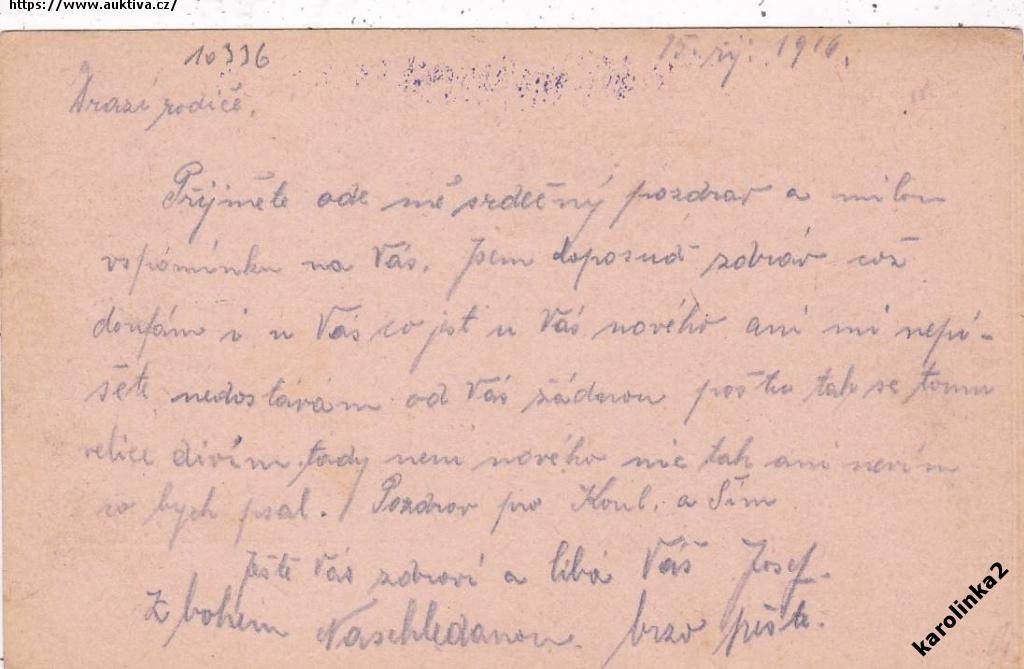 https://www.auktiva.cz/
10336
15. říj. 1916.
Drazí rodiče.
Přijměte ode mě srdečný pozdrav a milou
vspomínku na Vás. Jsem doposud zdráv což
doufám i u Vás co jest u Vás nového ani mi nepí-
šéte nedostávám od Vás žádnou poštu tak se tomu
velice divím. tady není nového nic tak ani nevím
co bych psal. Pozdrav pro Koul. a Sím
Ještě Vás zdraví a líbá Váš Josef.
Z bohem Naschledanou. brzo pište.
karolinka2